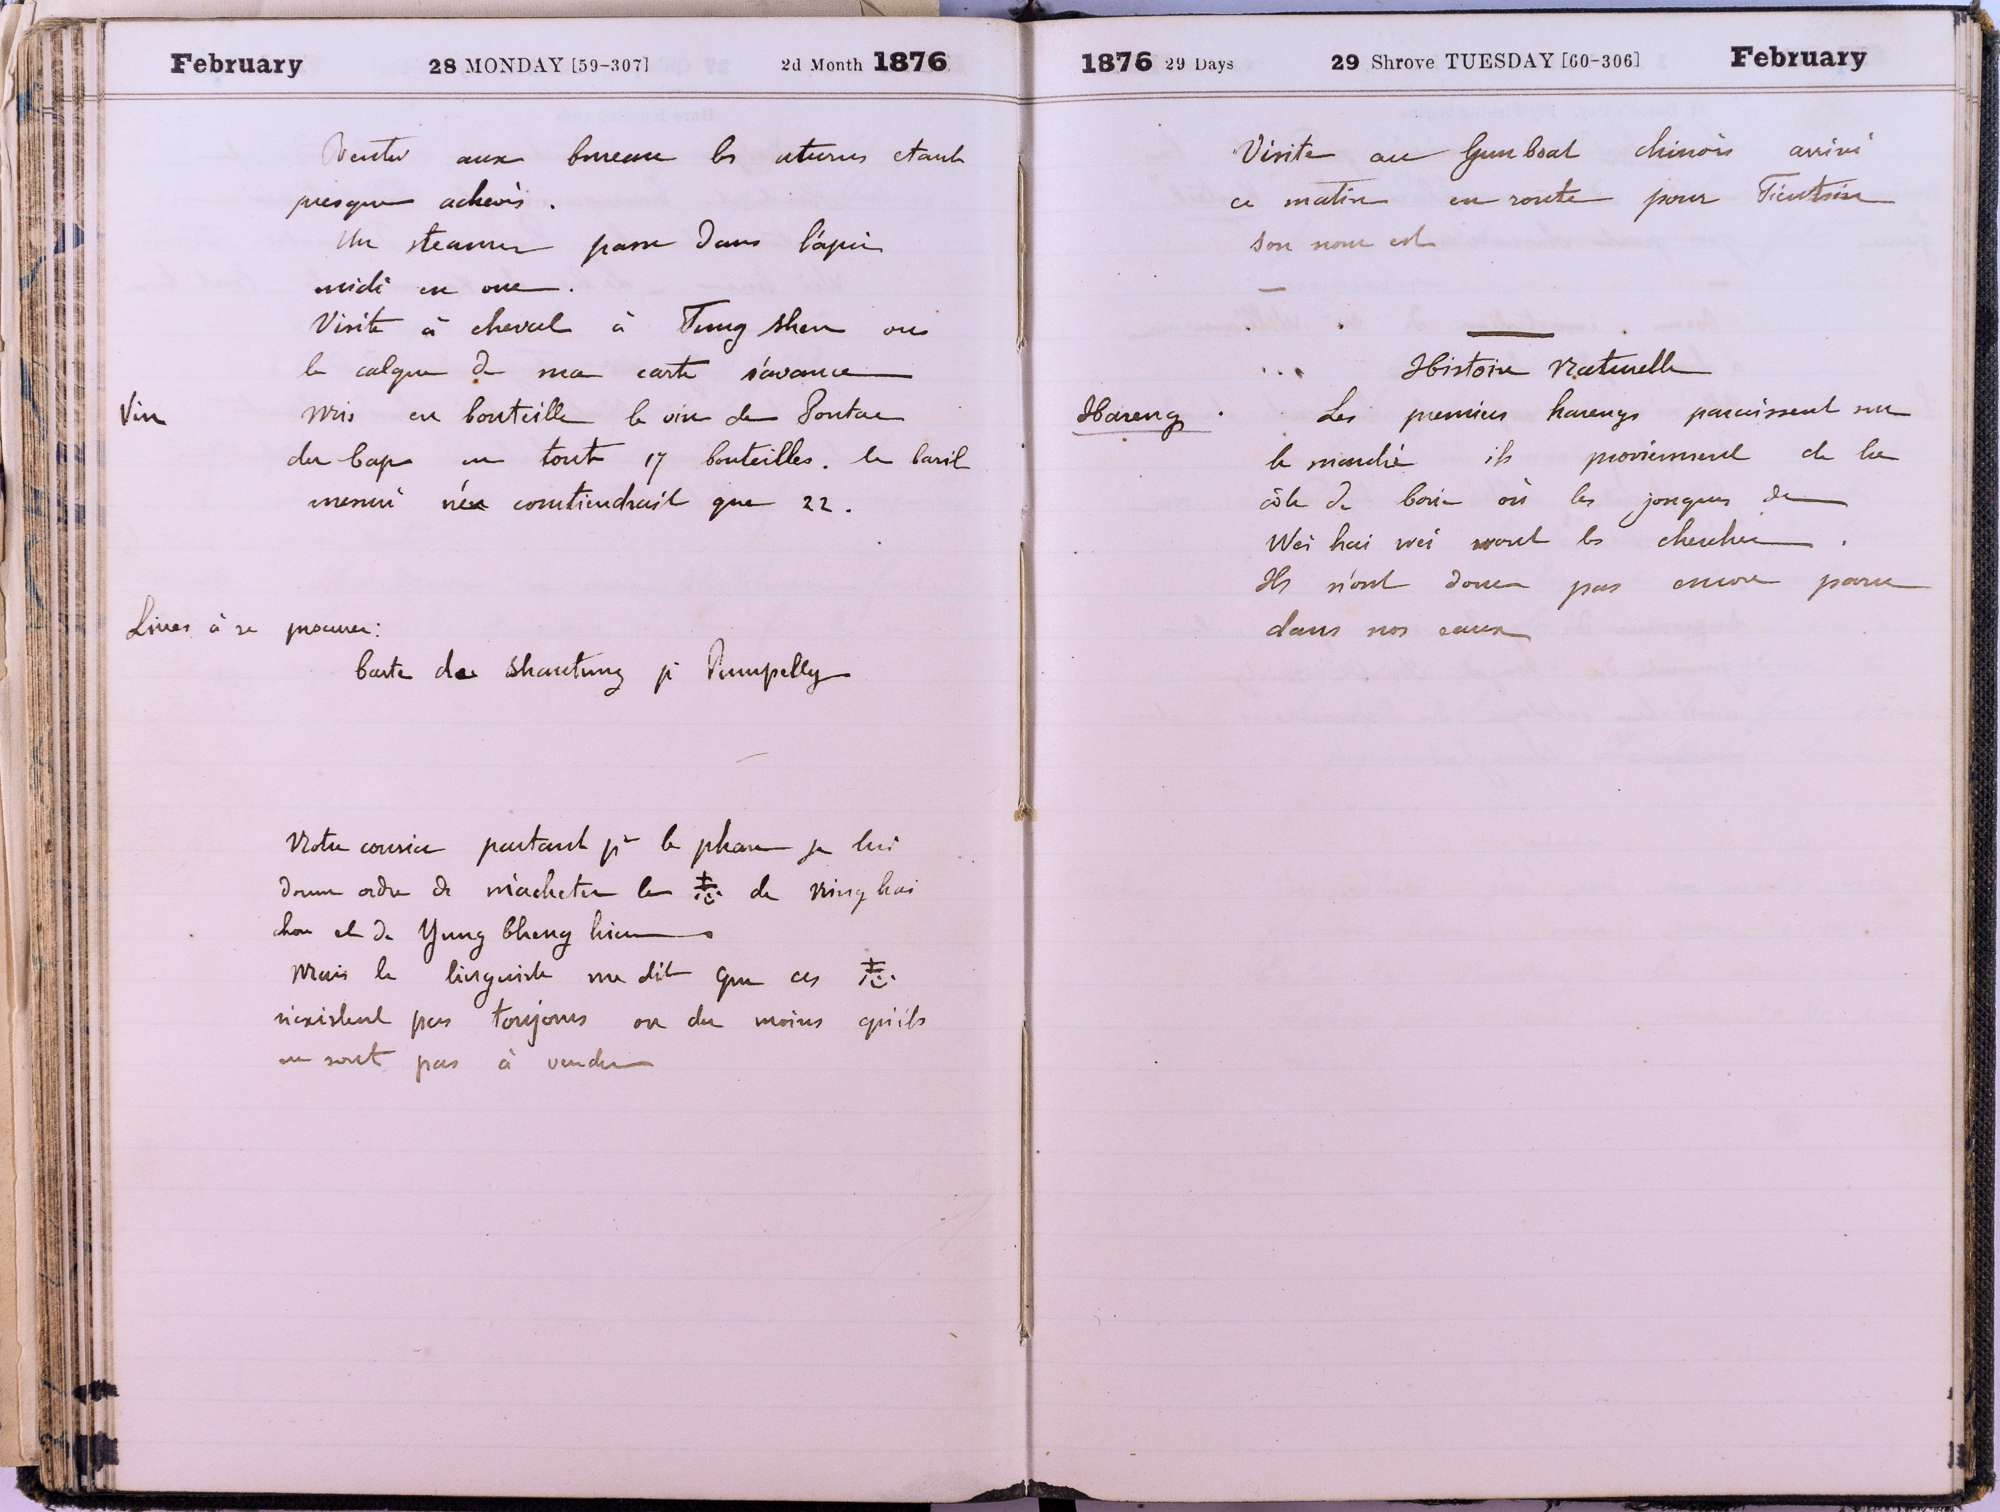 February 28 MONDAY [59-307] 2d Month 1876
aux bureau les returns etant
presque achevés.
Un steamer passe dans l'après
midi en vue.
Visite à cheval à Tung Shen ou
le calque de ma carte s'avance
Vin Mis en bouteille le vin de Pontac
du Cap en tout 17 bouteilles. le baril
mesuré n'en contiendrait que 22.
Livres à se procurer:
Carte de Shantung pr Pumpelly
Notre courier partant pr le phare je lui
donne ordre de m'acheter le 志 de Ning hai
chou et de Yung Cheng hien
Mais le linguiste me dit que ces 志
n'existent pas toujours ou du moins qu'ils
ne sont pas à vendre
1876 29 Days 29 Shrove TUESDAY [60-306] February
Visite au Gunboat chinois arrivé
ce matin en route pour Tientsin
son nom est
—
Histoire Naturelle
Hareng. Les premiers harengs paraissent sur
le marché ils proviennent de la
côte de Corée où les jonques de
Wei hai wei vont les chercher.
Ils n'ont donc pas encore paru
dans nos eaux